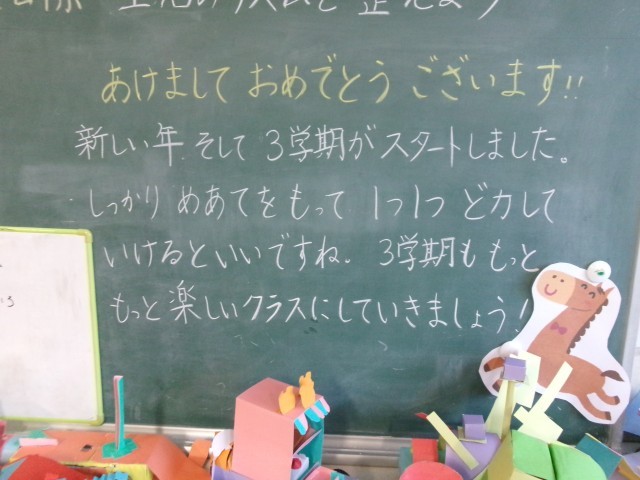 生活のリズムを整えよう
あけまして おめでとう ございます!!
新しい年.そして 3学期が スタートしました。
しっかり めあてを もって 1つ1つ ど力して
いけるといいですね. 3学期も もっと
もっと楽しいクラスにしていきましょう!